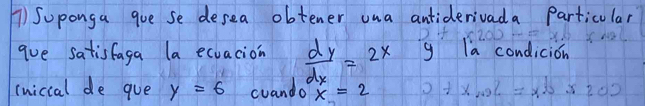 7) Suponga que se desea obtener una antiderivada particular
que satisfaga la ecuación dy/dx = 2x y la condición
inicial de que y = 6 cuando x = 2